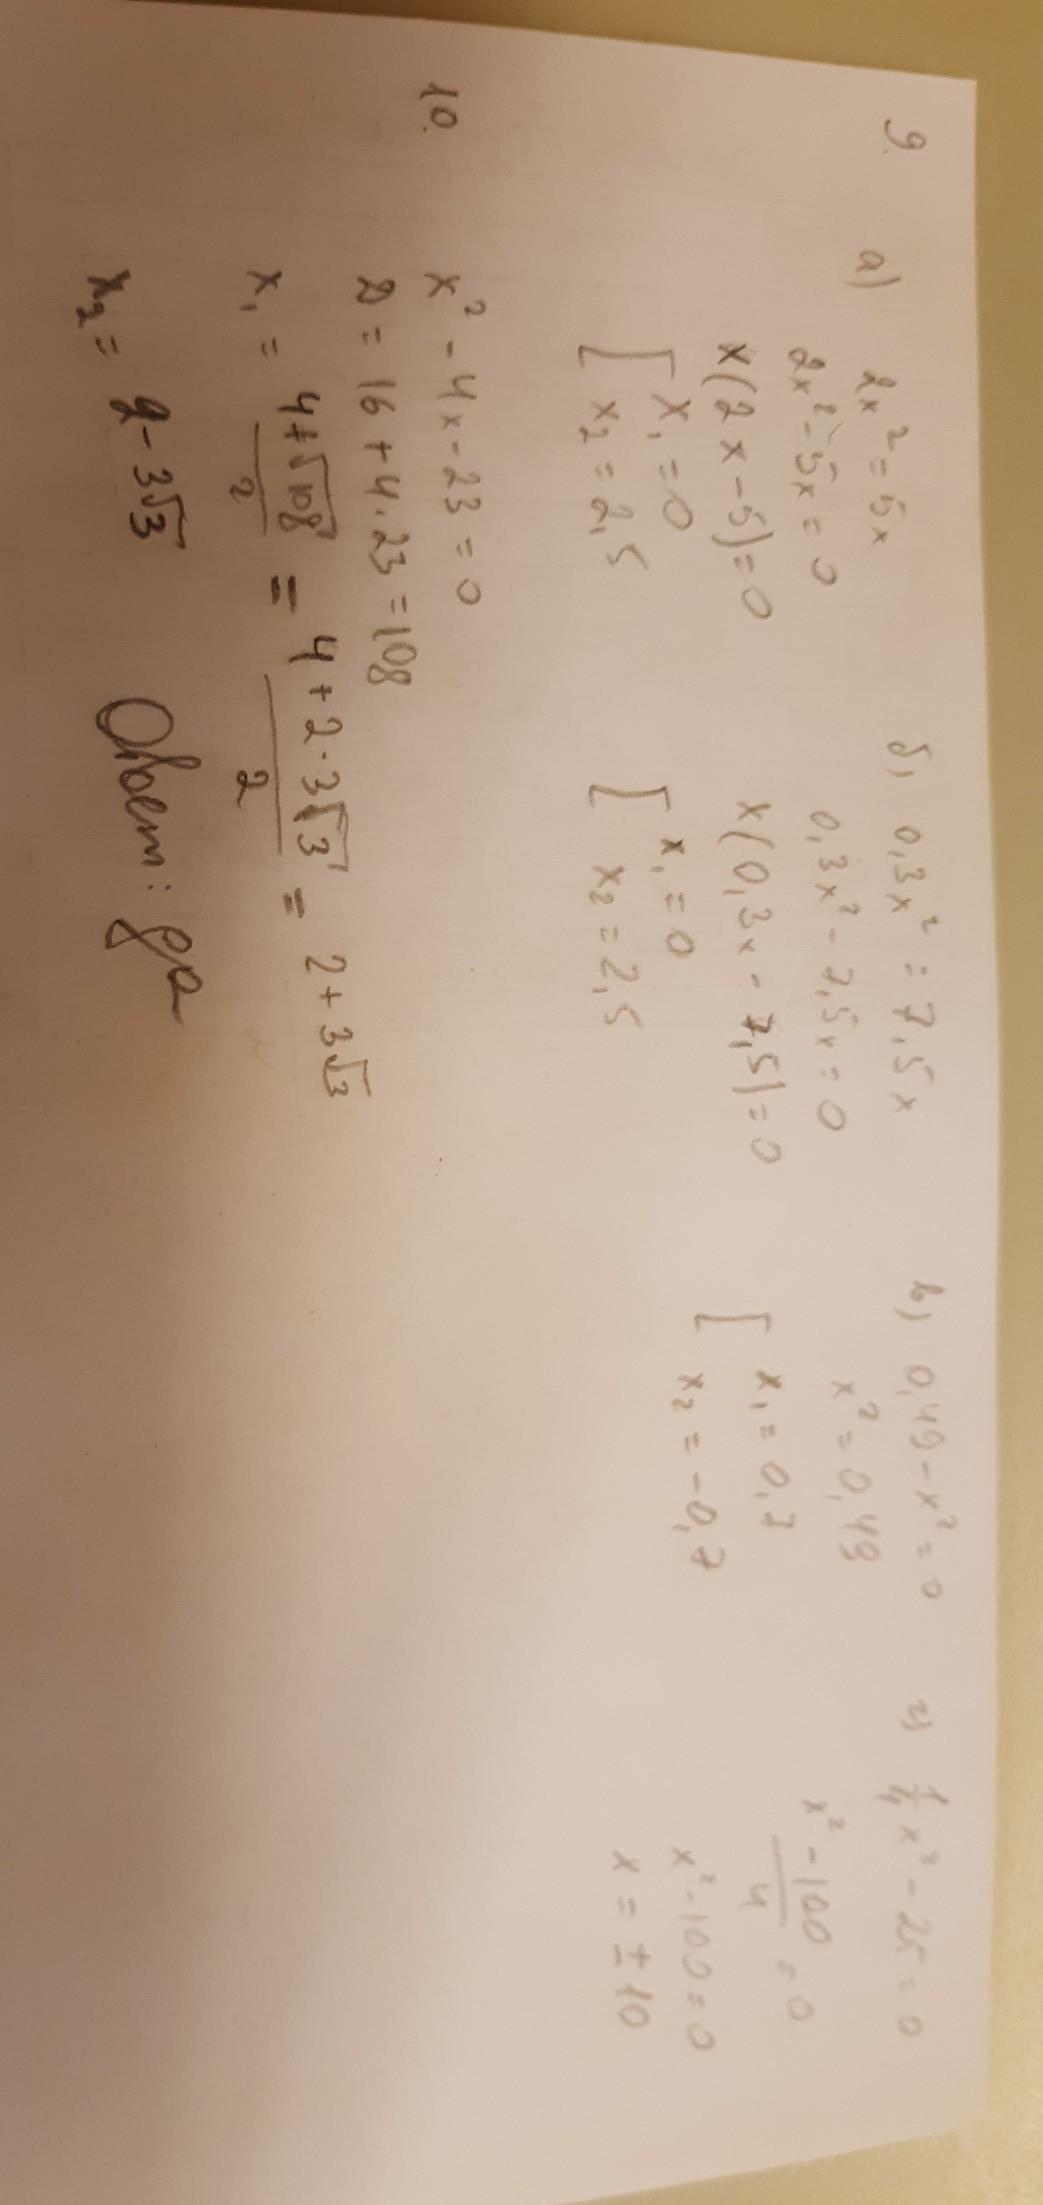 9.
а) 2x² = 5x
2x² - 5x = 0
x(2x - 5) = 0
[ x₁ = 0
x₂ = 2,5
б) 0,3x² = 7,5x
0,3x² - 7,5x = 0
x(0,3x - 7,5) = 0
[ x₁ = 0
x₂ = 2,5
в) 0,49 - x² = 0
x² = 0,49
[ x₁ = 0,7
x₂ = -0,7
г) 1/4 x² - 25 = 0
(x² - 100)/4 = 0
x² - 100 = 0
x = ± 10
10.
x² - 4x - 23 = 0
D = 16 + 4·23 = 108
x₁ = (4+√108)/2 = (4 + 2·3√3)/2 = 2 + 3√3
x₂ = 2 - 3√3
Ответ: да